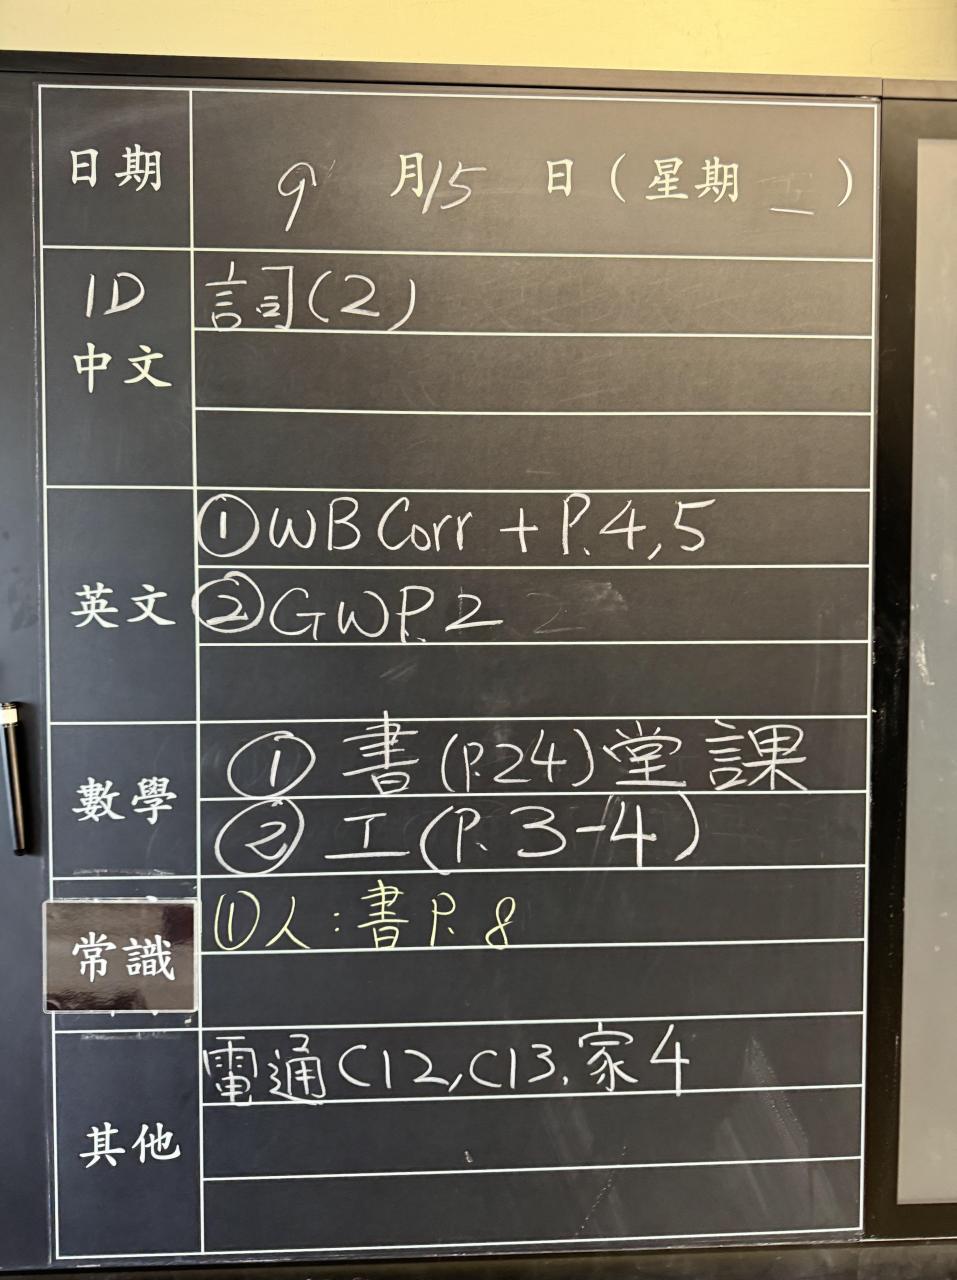 日期 9月15日（星期一）
1D
中文
詞(2)
英文
①WB Corr + P.4,5
②GWP.2
數學
①書(P.24)堂課
②工(P.3-4)
常識
①人:書P.8
其他
電通C12,C13,家4